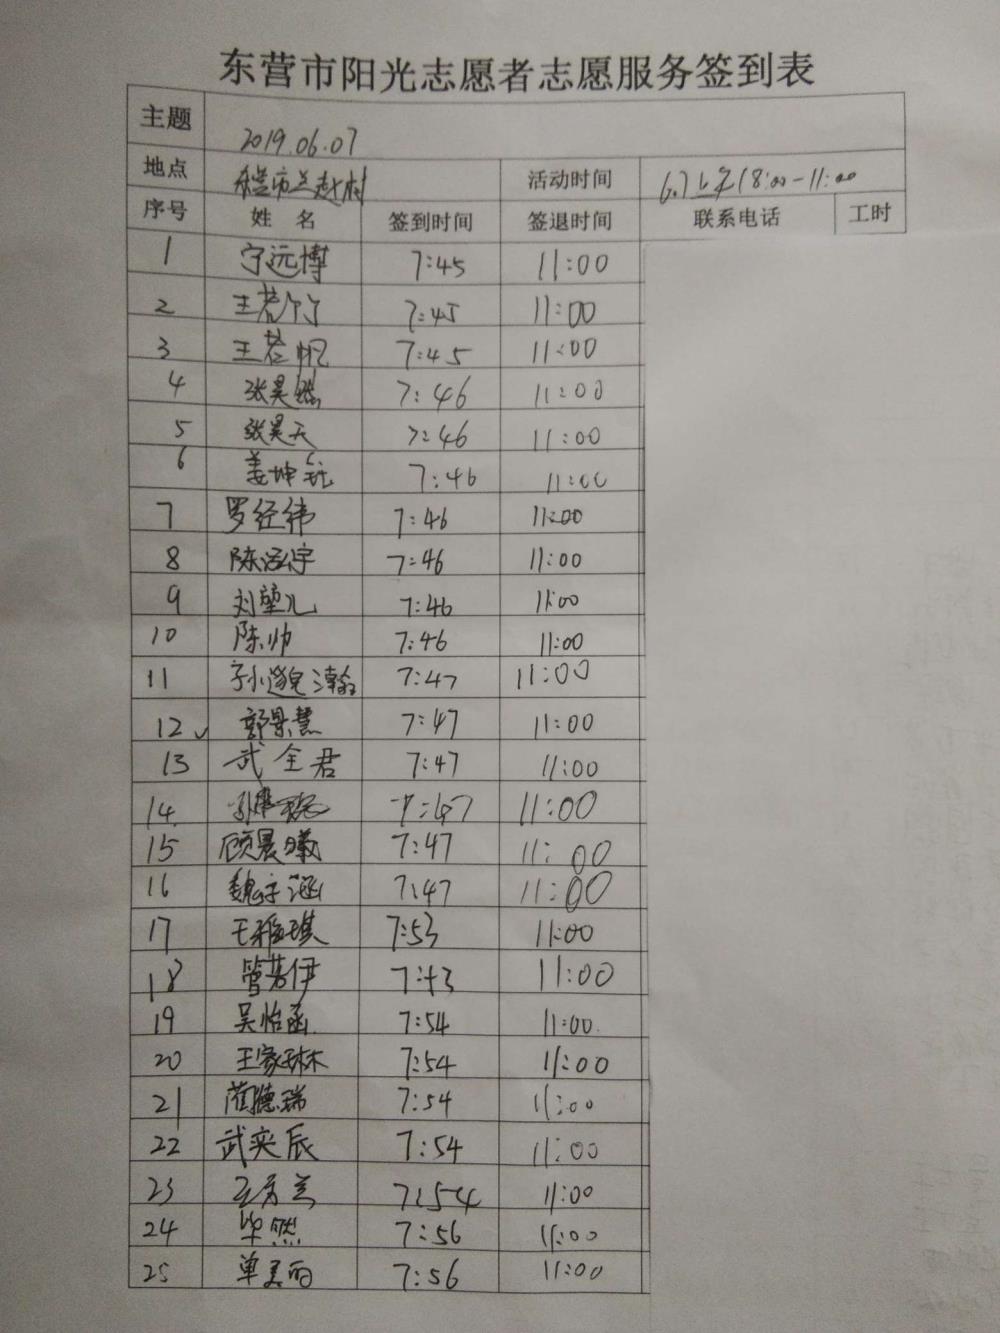 东营市阳光志愿者志愿服务签到表
主题 2019.06.07
地点 活动时间 6.7上午(8:00-11:00
序号 姓名 签到时间 签退时间 联系电话 工时
1 宁远博 7:45 11:00
2 王若竹 7:45 11:00
3 王若帆 7:45 11:00
4 张昊 7:46 11:00
5 张昊天 7:46 11:00
6 姜坤钰 7:46 11:00
7 罗经纬 7:46 11:00
8 陈泓宇 7:46 11:00
9 刘堃儿 7:46 11:00
10 陈帅 7:46 11:00
11 孙邈瀚 7:47 11:00
12 郭景慧 7:47 11:00
13 武全君 7:47 11:00
14 7:47 11:00
15 顾晨曦 7:47 11:00
16 魏宇涵 7:47 11:00
17 王雅琪 7:53 11:00
18 管若伊 7:43 11:00
19 吴怡函 7:54 11:00
20 王家琳 7:54 11:00
21 蔺德瑞 7:54 11:00
22 武奕辰 7:54 11:00
23 王秀兰 7:54 11:00
24 毕然 7:56 11:00
25 单美丽 7:56 11:00